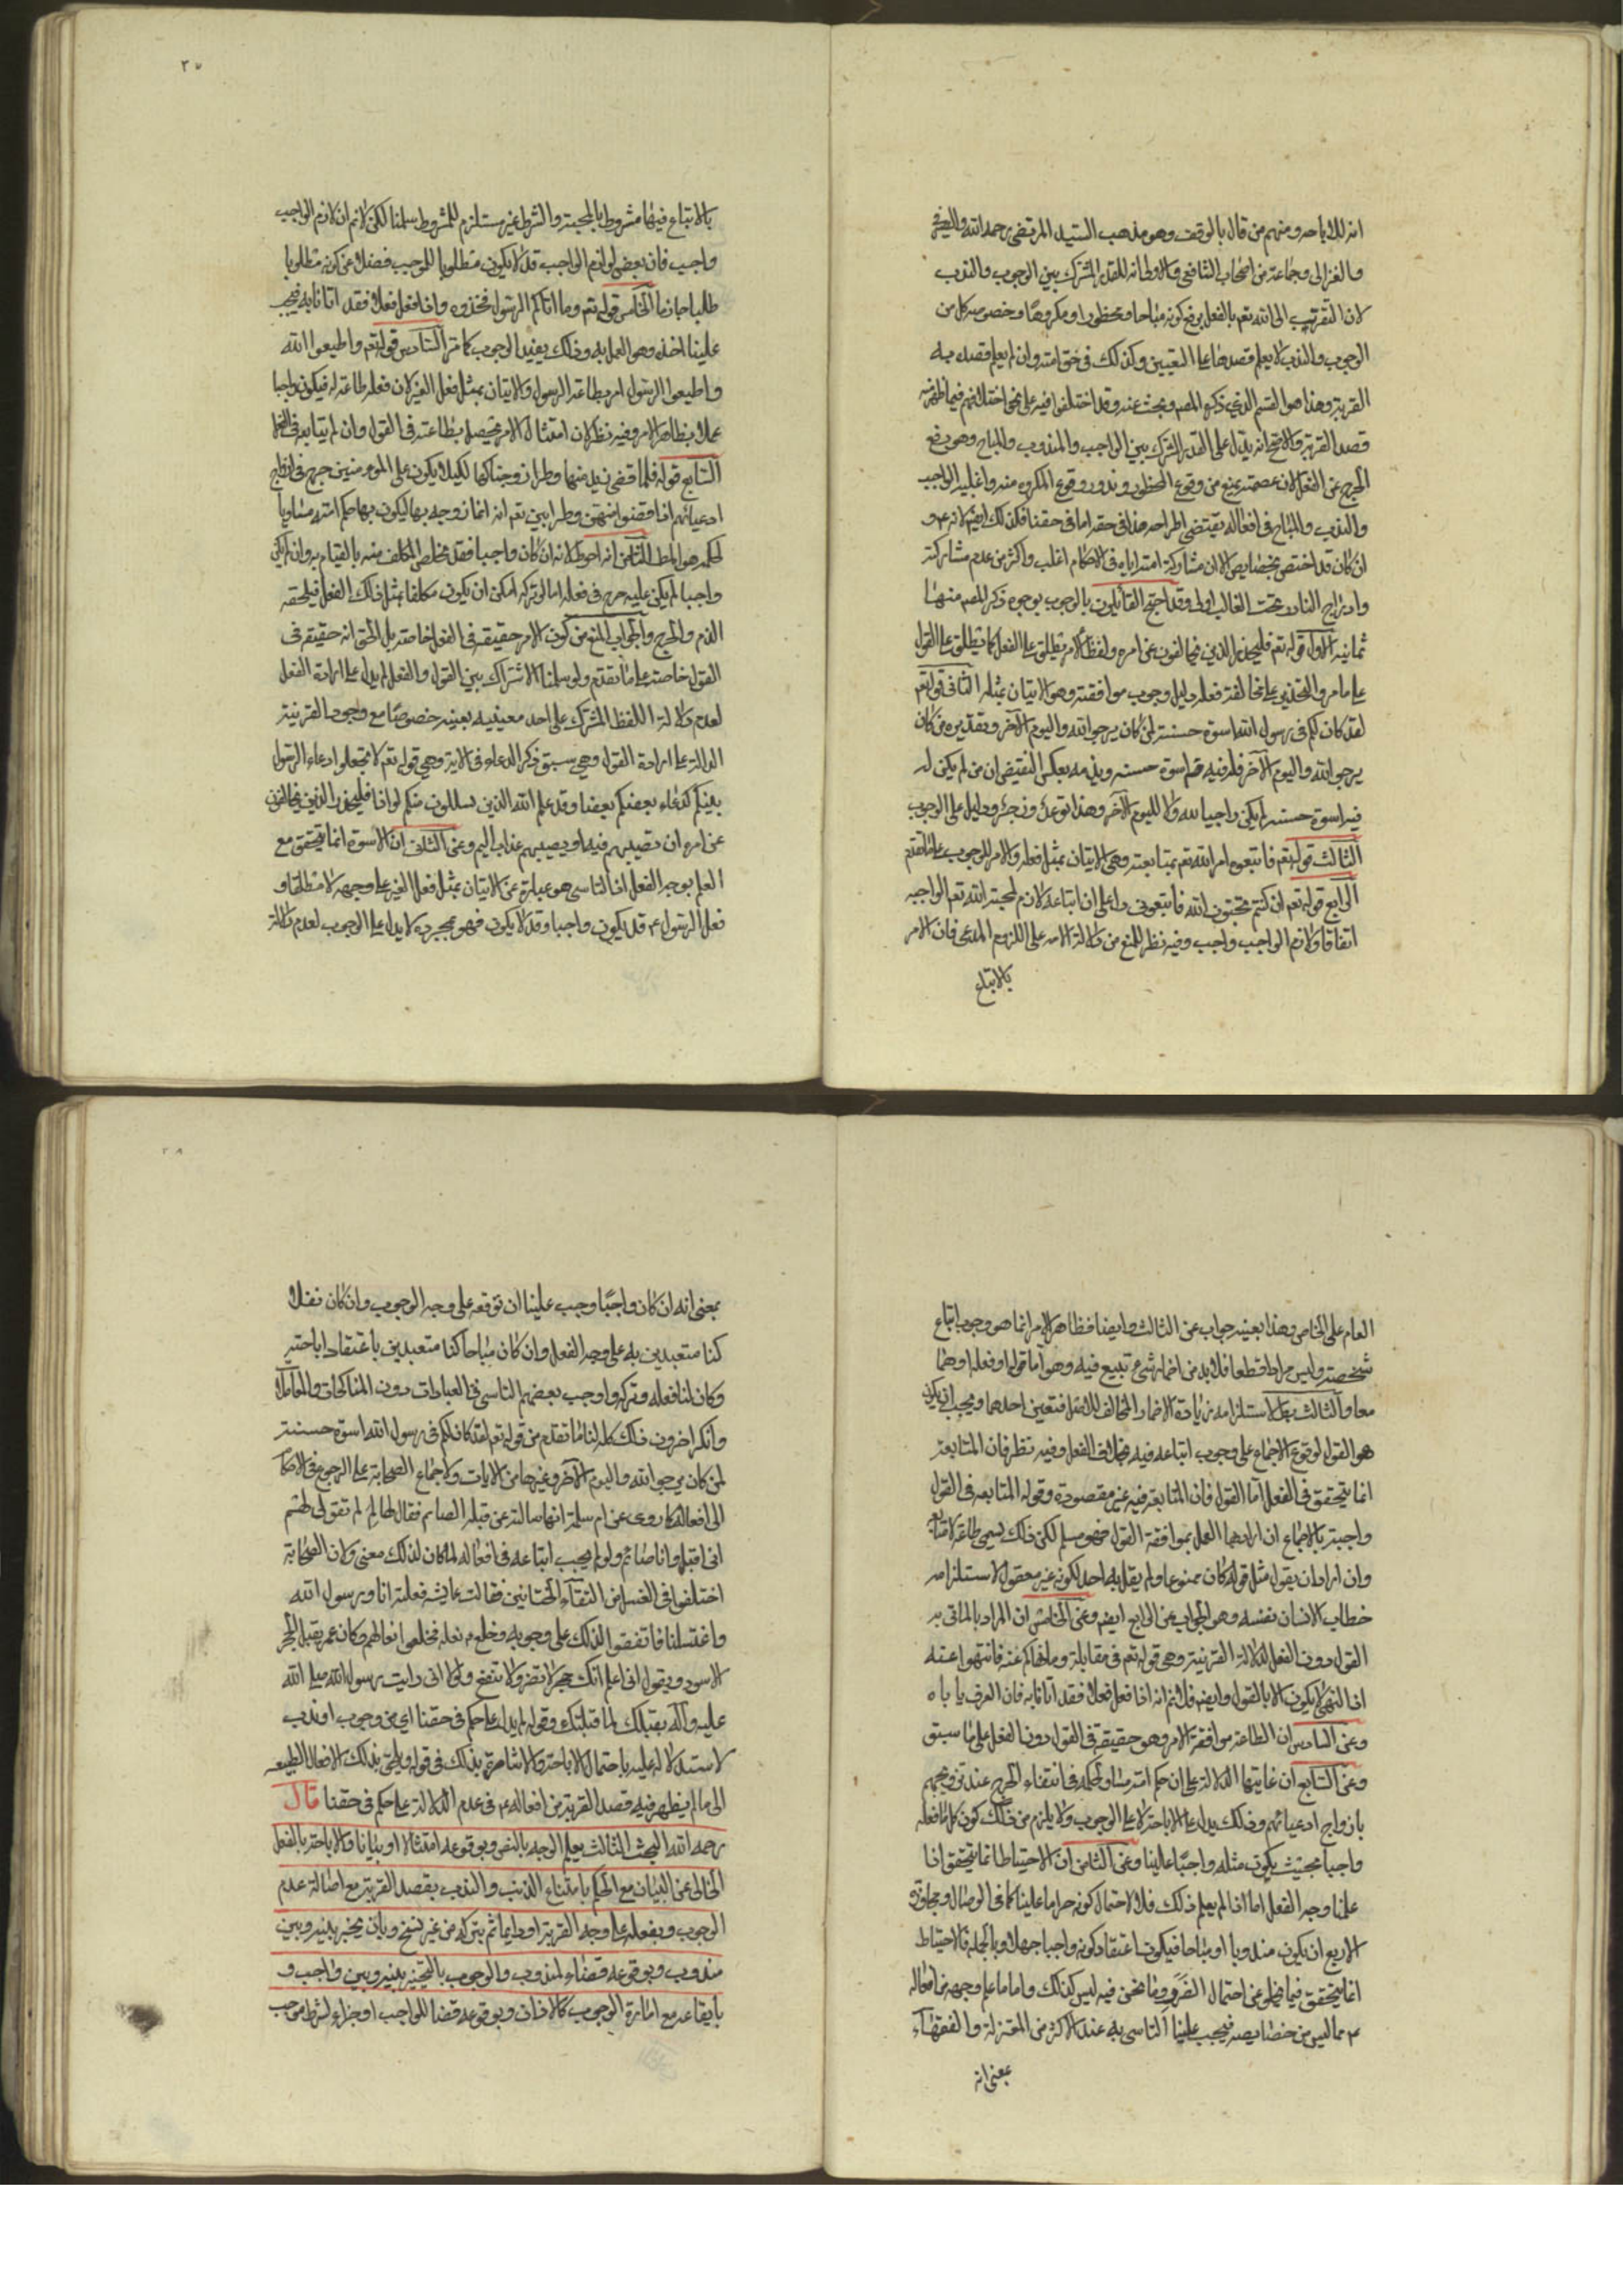 انه للاباحه ومنهم من قال بالوقف وهو مذهب السيد المرتضى رحمه الله والصيرفي
والغزالي وجماعة من اصحاب الشافعي والاولى انه للقدر المشترك بين الوجوب والندب
لان التقرب الى الله تعم بالفعل يرفع كونه مباحا ومحظورا او مكروها وخصوصية كل من
الوجوب والندب لا يعلم قصدها على التعيين وكذلك في حق امته وان لم يعلم قصده به
القربة وهذا هو القسم الذي ذكره المصر وبحث عنه وقد اختلفوا فيه على نحو اختلافهم فيما ظهر فيه
قصد القربة والاصح انه يدل على القدر المشترك بين الواجب والمندوب والمباح وهو رفع
الحرج عن الفعل لان عصمته تمنع من وقوع المحظور وندور وقوع المكروه منه واغلبية الواجب
والندب والمباح في افعاله يقتضي اطراحه هذا في حقه اما في حقنا فكذلك ايضا لانه ع و
ان كان قد اختص بخصايص الا ان مشاركة امته اياه في الاحكام اغلب واكثر من عدم مشاركته
وادراج النادر تحت الغالب اولى وقد احتج القائلون بالوجوب بوجوه ذكر المصر منها
ثمانية الاول قوله تعم فليحذر الذين يخالفون عن امره ولفظ الامر يطلق على الفعل كما يطلق على القول
على ما مر والتحذير على مخالفة فعله دليل وجوب موافقته وهو الاتيان بمثله الثاني قوله تعم
لقد كان لكم في رسول الله اسوة حسنة لمن كان يرجو الله واليوم الآخر وتقديره من كان
يرجو الله واليوم الآخر فله فيه اسوة حسنة ويلزمه بعكس النقيض ان من لم يكن له
فيه اسوة حسنة لم يكن راجيا لله ولا لليوم الآخر وهذا توعد وزجر ودليل على الوجوب
الثالث قوله تعم فاتبعوه امر الله تعم بمتابعته وهي الاتيان بمثل فعله والامر للوجوب على ما تقدم
الرابع قوله تعم ان كنتم تحبون الله فاتبعوني دل على ان اتباعه لازم لمحبة الله تعم الواجبة
اتفاقا ولازم الواجب واجب وفيه نظر للمنع من دلالة الامر على اللزوم المدعى فان الامر
بالاتباع
٣٧
بالاتباع فيها مشروط بالمحبة والشرط غير مستلزم للمشروط سلمنا لكن لا نم ان لازم الواجب
واجب فان بعض لوازم الواجب قد لا يكون مطلوبا للموجب فضلا عن كونه مطلوبا
طلبا جازما الخامس قوله تعم وما آتاكم الرسول فخذوه واذا فعل فعلا فقد اتانا به فيجب
علينا اخذه وهو العمل به وذلك يفيد الوجوب كما مر السادس قوله تعم واطيعوا الله
واطيعوا الرسول امر بطاعة الرسول والاتيان بمثل فعل الغير لان فعله طاعة له فيكون واجبا
عملا بظاهر الامر وفيه نظر لان امتثال الامر يحصل بطاعته في القول وان لم يتابعه في الفعل
السابع قوله فلما قضى زيد منها وطرا زوجناكها لكيلا يكون على المؤمنين حرج في ازواج
ادعيائهم اذا قضوا منهن وطرا بين تعم انه انما زوجه بها ليكون بها حكم امته مساويا
لحكمه وهو المط الثامن انه احوط لانه ان كان واجبا فقد تخلص المكلف منه بالقيام به وان لم يكن
واجبا لم يكن عليه حرج في فعله اما لو تركه امكن ان يكون مكلفا بمثل ذلك الفعل فيلحقه
الذم والحرج والجواب المنع من كون الامر حقيقة في الفعل خاصة بل الحق انه حقيقة في
القول خاصة على ما تقدم ولو سلمنا الاشتراك بين القول والفعل لم يدل على ارادة الفعل
لعدم دلالة اللفظ المشترك على احد معنييه بعينه خصوصا مع وجود القرينة
الدالة على ارادة القول وهي سبق ذكر الدعاء في الاية وهي قوله تعم لا تجعلوا دعاء الرسول
بينكم كدعاء بعضكم بعضا وقد علم الله الذين يتسللون منكم لواذا فليحذر الذين يخالفون
عن امره ان تصيبهم فتنة او يصيبهم عذاب اليم وعن الثاني ان الاسوة انما يتحقق مع
العلم بوجه الفعل اذ التاسي هو عبارة عن الاتيان بمثل فعل الغير على وجهه لا مطلقا و
فعل الرسول ع قد يكون واجبا وقد لا يكون فهو بمجرده لا يدل على الوجوب لعدم دلالة
العام على الخاص وهذا بعينه جواب عن الثالث وايضا فظاهر الامر انما هو وجوب اتباع
شخصه وليس مرادا قطعا فلا بد من اضمار شيء تتبع فيه وهو اما قوله او فعله او هما
معا والثالث بط لاستلزامه زيادة الاضمار المخالف للاصل فتعين احدهما ويجب ان يكون
هو القول لوقوع الاجماع على وجوب اتباعه فيه بخلاف الفعل وفيه نظر فان المتابعة
انما يتحقق في الفعل اما القول فان المتابعة فيه غير مقصودة وقوله المتابعة في القول
واجبة بالاجماع ان اراد بها العمل بموافقة القول فهو مسلم لكن ذلك يسمى طاعة لا متابعة
وان اراد ان يقول مثل قوله كان ممنوعا ولم يقل به احد لكونه غير معقول لاستلزامه
خطاب الانسان نفسه وهو الجواب عن الرابع ايضا وعن الخامس ان المراد بالماتي به
القول دون الفعل لدلالة القرينة وهي قوله تعم في مقابلة وما نهاكم عنه فانتهوا عنه
اذ النهي لا يكون الا بالقول وايضا فلا نم انه اذا فعل فعلا فقد آتانا به فان العرف ياباه
وعن السادس ان الطاعة موافقة الامر وهو حقيقة في القول دون الفعل على ما سبق
وعن السابع ان غايتها الدلالة على ان حكم امته مساو لحكمه في انتفاء الحرج عند تزويجهم
بازواج ادعيائهم وذلك يدل على الاباحة لا على الوجوب ولا يلزم من ذلك كون كل ما فعله
واجبا بحيث يكون مثله واجبا علينا وعن الثامن ان الاحتياط انما يتحقق اذا
علمنا وجه الفعل اما اذا لم يعلم ذلك فلا لاحتمال كونه حراما علينا كما في الوصال ومجاوزة
الاربع ان يكون مندوبا او مباحا فيكون اعتقاد كونه واجبا جهلا وبالجملة فالاحتياط
انما يتحقق فيما يخلو عن احتمال الضرر وما نحن فيه ليس كذلك واما ما علم وجهه من افعاله
ع مما ليس من خصايصه فيجب علينا التاسي به عند الاكثر من المعتزلة والفقهاء
بمعنى انه
٣٨
بمعنى انه ان كان واجبا وجب علينا ان نوقعه على وجه الوجوب وان كان نفلا
كنا متعبدين به على وجه الفعل وان كان مباحا كنا متعبدين باعتقاد اباحته
وكان لنا فعله وتركه واوجب بعضهم التاسي في العبادات دون المناكحات والمعاملات
وانكر اخرون ذلك كله لنا ما تقدم من قوله تعم لقد كان لكم في رسول الله اسوة حسنة
لمن كان يرجو الله واليوم الآخر وغيرها من الايات ولاجماع الصحابة على الرجوع في الاحكام
الى افعاله كما روى عن ام سلمة انها سالته عن قبلة الصائم فقال لها لم لم تقولي لهم
اني اقبل وانا صائم ولو لم يجب اتباعه في افعاله لما كان لذلك معنى ولان الصحابة
اختلفوا في الغسل من التقاء الختانين فقالت عايشة فعلته انا ورسول الله
واغتسلنا فاتفقوا لذلك على وجوبه وخلع ع نعله فخلعوا نعالهم وكان عمر يقبل الحجر
الاسود ويقول اني اعلم انك حجر لا تضر ولا تنفع ولولا اني رايت رسول الله صلى الله
عليه وآله يقبلك لما قبلتك وقوله لم يدل على حكم في حقنا اي من وجوب او ندب
لاستدلاله عليه باحتمال الاباحة والاشارة بذلك في قوله ويلحق بذلك الافعال الطبيعية
الى ما لم يظهر فيه قصد القربة من افعاله ع في عدم الدلالة على حكم في حقنا قال
رحمه الله البحث الثالث يعلم الوجه بالنص وبوقوعه امتثالا او بيانا والاباحة بالفعل
الخالي عن البيان مع الحكم بامتناع الذنب والندب بقصد القربة مع اصالة عدم
الوجوب وبفعله على وجه القربة او دايما ثم يتركه من غير نسخ وبان يخير بينه وبين
مندوب وبوقوعه قضاء لمندوب والوجوب بالتخيير بينه وبين واجب و
بايقاعه مع امارة الوجوب كالاذان وبوقوعه قضا للواجب او جزاء لشرط موجب